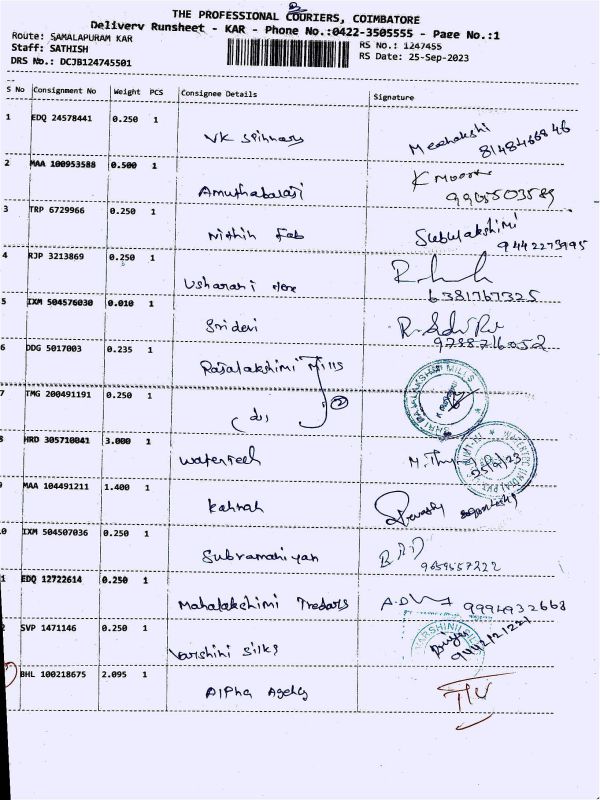 THE PROFESSIONAL COURIERS, COIMBATORE
Delivery Runsheet - KAR - Phone No.:0422-3505555 - Page No.:1
Route: SAMALAPURAM KAR
Staff: SATHISH
DRS No.: DCJB124745501
RS No.: 1247455
RS Date: 25-Sep-2023
S No Consignment No Weight PCS Consignee Details Signature
1 EDQ 24578441 0.250 1
VK Spinners Meenakshi
8148466846
2 MAA 100953588 0.500 1
Amuthabalaji K Moorthi
9965503589
3 TRP 6729966 0.250 1
Nithin Fab Subulakshimi
9442273995
4 RJP 3213869 0.250 1
Usharani Home
6381767325
5 IXM 504576030 0.010 1
Sridevi
9788716052
6 DDG 5017003 0.235 1
Rajalakshimi Mills
SHRI RAJALAKSHMI MILLS
7 TMG 200491191 0.250 1
do 2
8 HRD 305710041 3.000 1
Watertech M. Thu
25/9/23
9 MAA 104491211 1.400 1
Kannan
0 IXM 504507036 0.250 1
Subramaniyan
9659557222
1 EDQ 12722614 0.250 1
Mahalakshimi Tredars 9994932668
2 SVP 1471146 0.250 1
Varshini Silks
VARSHINI SILKS
9442121221
BHL 100218675 2.095 1
Alpha Agency